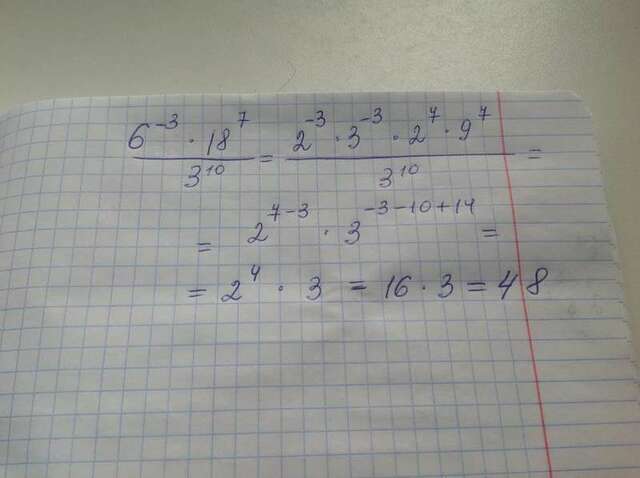 6^-3 · 18^7 / 3^10 = 2^-3 · 3^-3 · 2^7 · 9^7 / 3^10 =
= 2^7-3 · 3^-3-10+14 =
= 2^4 · 3 = 16 · 3 = 48